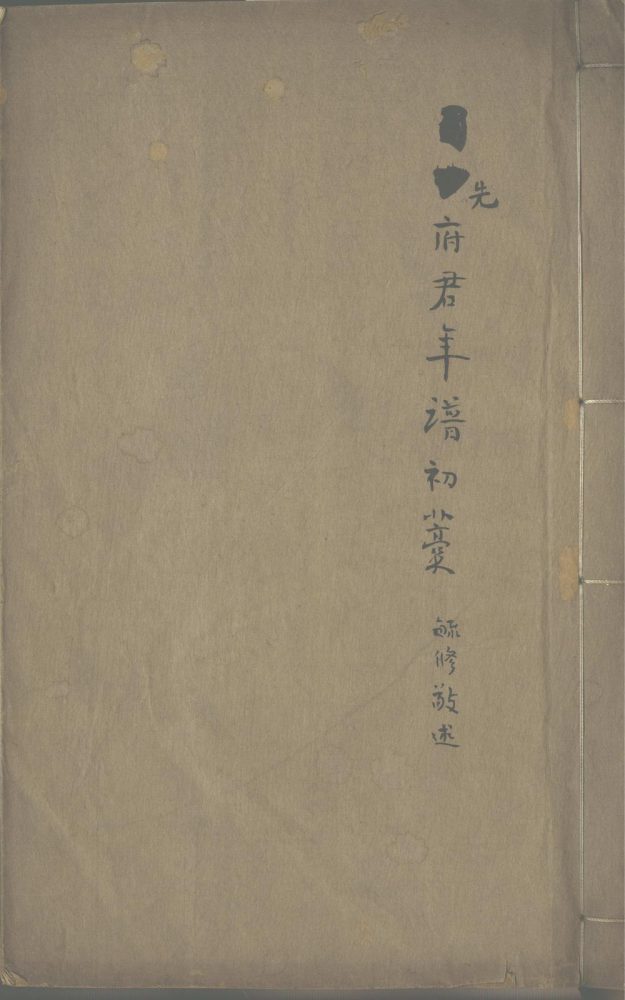 先府君年譜初藁 毓修敬述